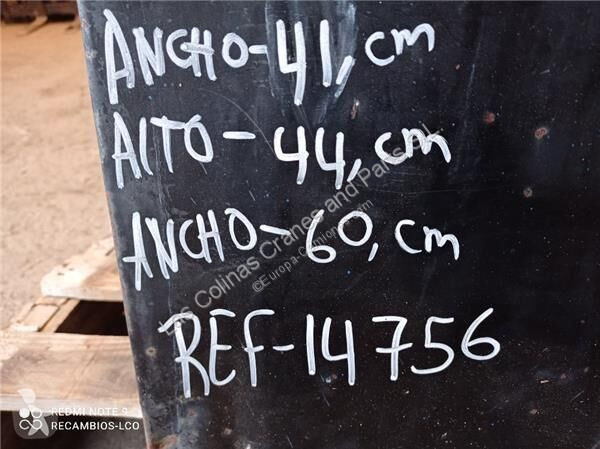 ANCHO-41, cm
ALTO-44, cm
ANCHO-60, cm
REF-14756
Las Colinas Cranes and Parts SL
©Europa-Camiones.com
REDMI NOTE 9
RECAMBIOS-LCO